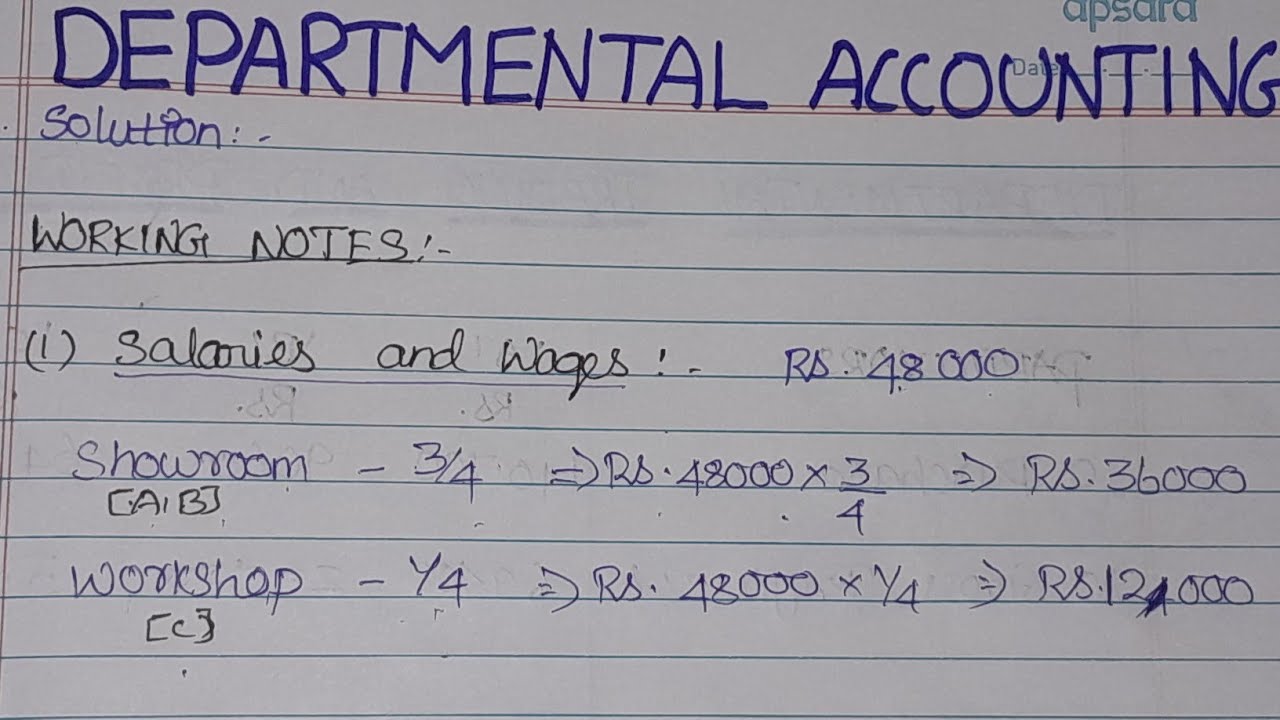 apsara
DEPARTMENTAL ACCOUNTING
Date
Solution:-
WORKING NOTES:-
(i) Salaries and Wages:- RS. 48000
Showroom - 3/4 => RS. 48000 × 3/4 => RS. 36000
[A, B]
Workshop - 1/4 => RS. 48000 × 1/4 => RS. 12,000
[C]